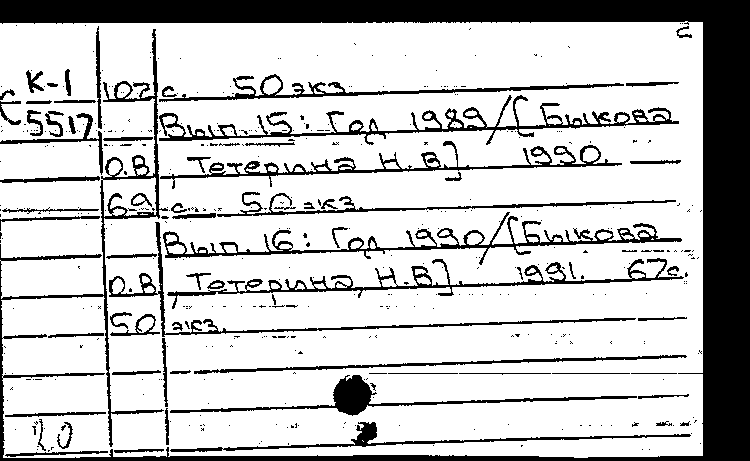 с
К-1 102 с. 50 экз.
С 5517 Вып. 15: Год 1989/[Быкова
О.В., Тетерина Н.В.]. 1990.
69 с. 50 экз.
Вып. 16: Год 1990/[Быкова
О.В., Тетерина, Н.В.]. 1991. 67с.
50 экз.